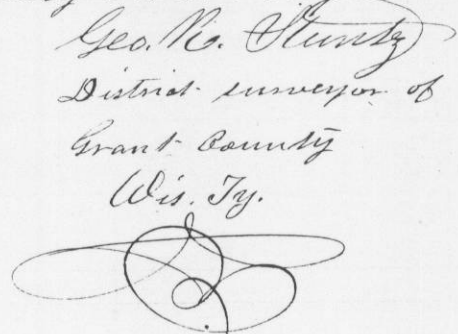 Geo. R. Stuntz
District surveyor of
Grant County
Wis. Ty.